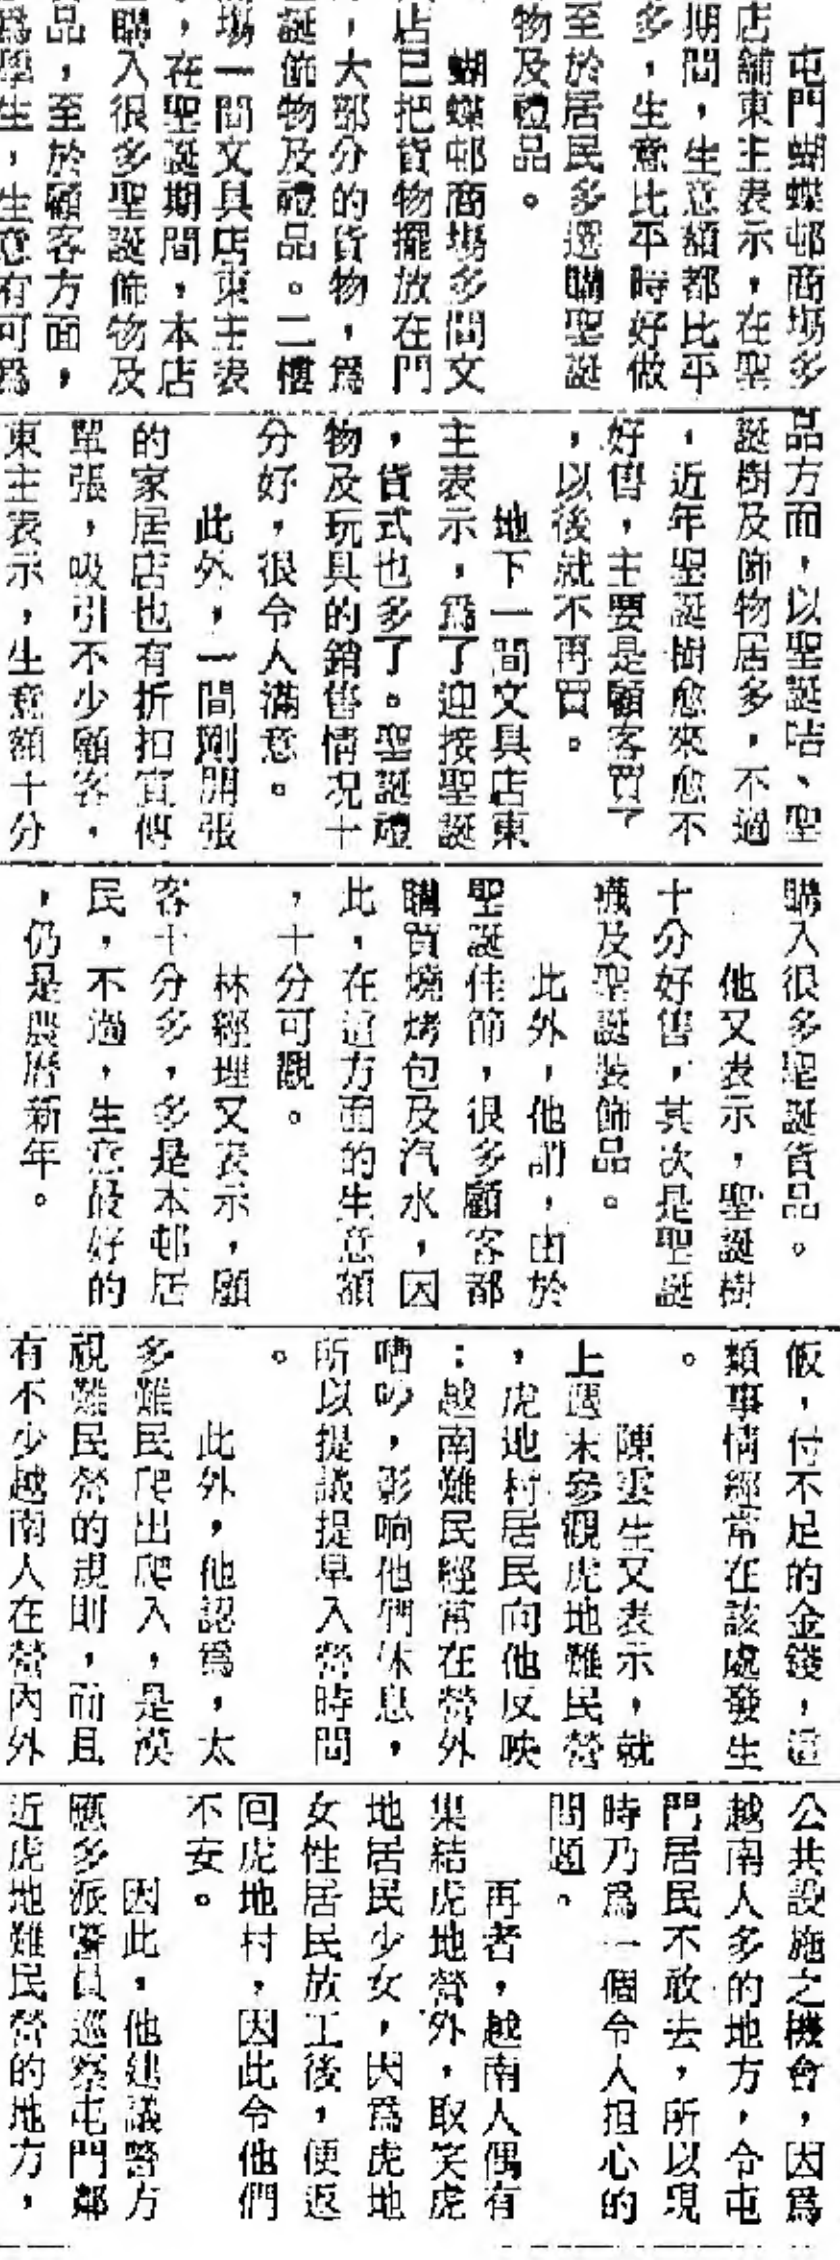 屯門蝴蝶邨商場多
店舖東主表示，在聖
期間，生意額都比平
多，生意比平時好做
至於居民多選購聖誕
物及禮品。
蝴蝶邨商場多間文
店已把貨物擺放在門
，大部分的貨物，爲
誕飾物及禮品。二樓
場一間文具店東主表
，在聖誕期間，本店
購入很多聖誕飾物及
品，至於顧客方面，
爲學生，生意有可爲
品方面，以聖誕咭、聖
誕樹及飾物居多，不過
，近年聖誕樹愈來愈不
好售，主要是顧客買了
，以後就不再買。
地下一間文具店東
主表示，爲了迎接聖誕
，貨式也多了。聖誕禮
物及玩具的銷售情況十
分好，很令人滿意。
此外，一間剛開張
的家居店也有折扣宣傳
單張，吸引不少顧客，
東主表示，生意額十分
購入很多聖誕貨品。
他又表示，聖誕樹
十分好售，其次是聖誕
襪及聖誕裝飾品。
此外，他謂，由於
聖誕佳節，很多顧客都
購買燒烤包及汽水，因
此，在這方面的生意額
，十分可觀。
林經理又表示，顧
客十分多，多是本邨居
民，不過，生意最好的
，仍是農曆新年。
飯，付不足的金錢，這
類事情經常在該處發生
。
陳雲生又表示，就
上週末參觀虎地難民營
，虎地村居民向他反映
：越南難民經常在營外
嘈吵，影响他們休息，
所以提議提早入營時間
。
此外，他認爲，太
多難民爬出爬入，是漠
視難民營的規則，而且
有不少越南人在營內外
公共設施之機會，因爲
越南人多的地方，令屯
門居民不敢去，所以現
時乃爲一個令人担心的
問題。
再者，越南人偶有
集結虎地營外，取笑虎
地居民少女，因爲虎地
女性居民放工後，便返
回虎地村，因此令他們
不安。
因此，他建議警方
應多派警員巡察屯門鄰
近虎地難民營的地方，